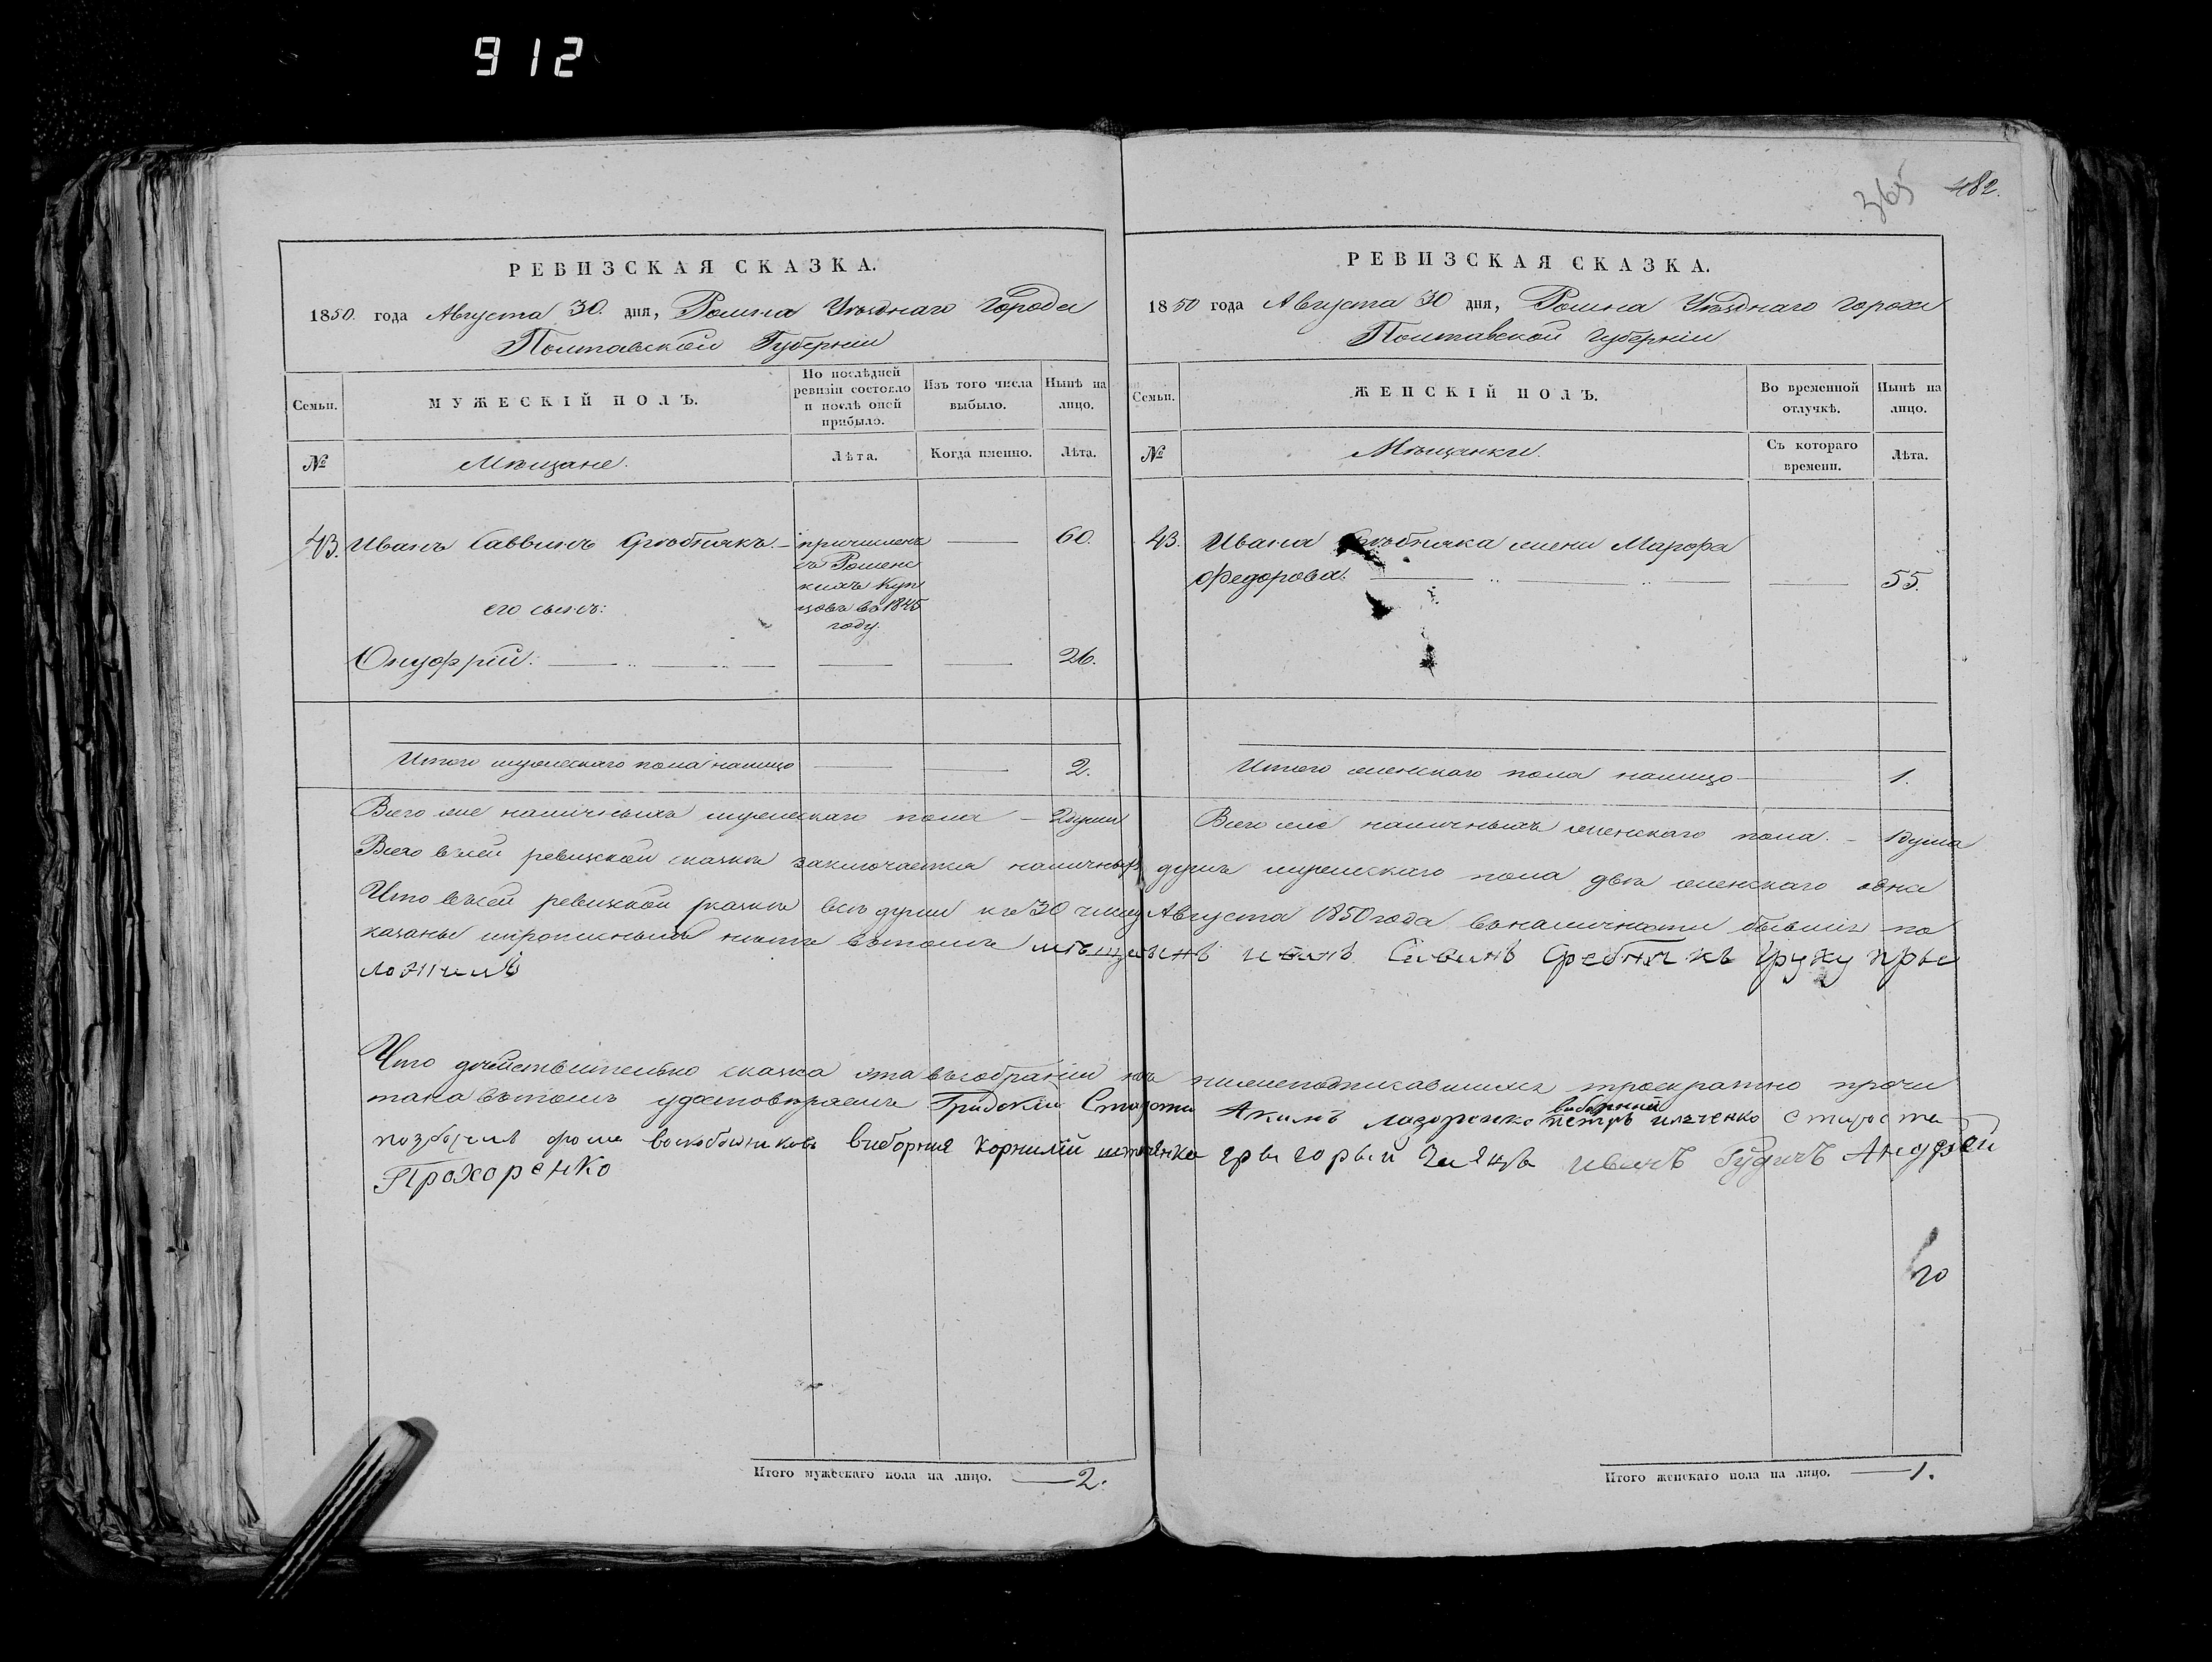 912
365 482.
РЕВИЗСКАЯ СКАЗКА.
1850. года Августа 30. дня, Ромна Уѣзднаго Города
Полтавской Губерніи
Семьи.
МУЖЕСКІЙ ПОЛЪ.
По послѣдней ревизіи состояло и послѣ оной прибыло.
Изъ того числа выбыло.
Нынѣ на лицо.
№
Мѣщане.
Лѣта.
Когда именно.
Лѣта.
43. Иванъ Саввинъ — причисленъ — 60.
съ Роменс
кихъ Куп
его сынъ: цовъ въ 1845
году.
Онуфрій. — 26.
Итого мужескаго пола налицо — 2.
Всего же наличныхъ мужескаго пола — 2 души
РЕВИЗСКАЯ СКАЗКА.
1850 года Августа 30 дня, Ромна Уѣзднаго города
Полтавской губерніи
Семьи.
ЖЕНСКІЙ ПОЛЪ.
Во временной отлучкѣ.
Нынѣ на лицо.
№
Мѣщанки.
Съ котораго времени.
Лѣта.
43. Ивана жена Марфа
Федорова. — 55.
Итого женскаго пола налицо — 1.
Всего же наличныхъ женскаго пола. — 1 душа
Всего въ сей ревизской сказкѣ заключается наличныхъ душъ мужескаго пола двѣ женскаго одна
Что въ сей ревизской сказкѣ всѣ души къ 30 числу Августа 1850 года въ наличности бывшія по
казаны и прописныхъ нѣтъ въ томъ мѣщанинъ иванъ Савинъ руку пры
ложилъ
Что дѣйствительно сказка эта въ собраніи насъ нижеподписавшихся троекратно прочи
тана въ томъ удостовѣряемъ Градскій Староста Акимъ лазоренко виборний петръ илченко староста
фома воскобойниковъ виборния корнилій грыгорый иванъ Рудичъ Андрей
Прохоренко
Итого мужескаго пола на лицо. — 2.
Итого женскаго пола на лицо. — 1.